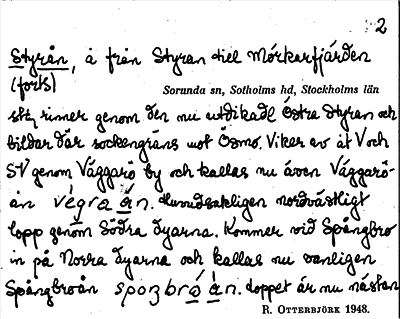 2
Styrån, å från Styran till Mörkarfjärden
(forts)
Sorunda sn, Sotholms hd, Stockholms län
rinner genom den nu utdikade Östra Styran och
bildar där sockengräns mot Ösmo. Viker av åt V och
SV genom Väggarö by och kallas nu även Väggarö-
ån vėgra ån. Huvudsakligen nordvästligt
lopp genom Södra dyarna. Kommer vid Spångbro
in på Norra dyarna och kallas nu vanligen
Spångbroån spoŋbro ån. Loppet är nu nästan
R. OTTERBJÖRK 1948.